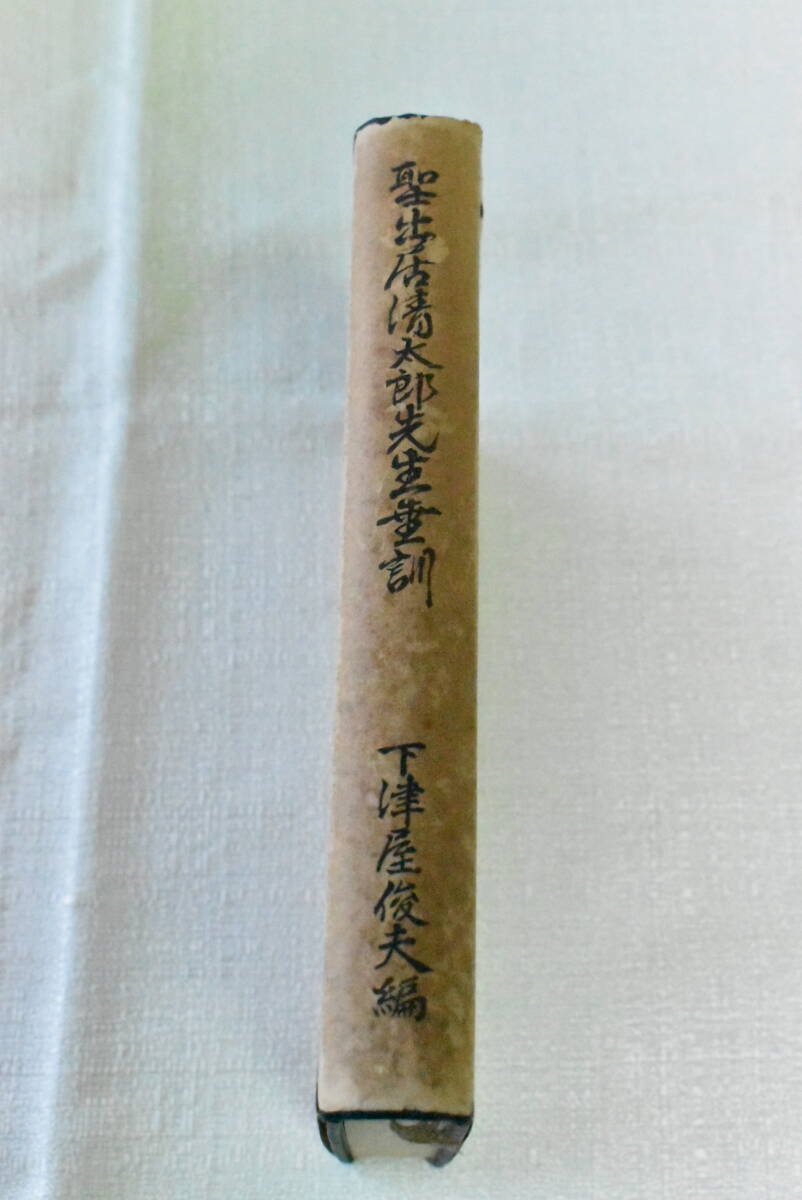 聖出居清太郎先生垂訓
下津屋俊夫編